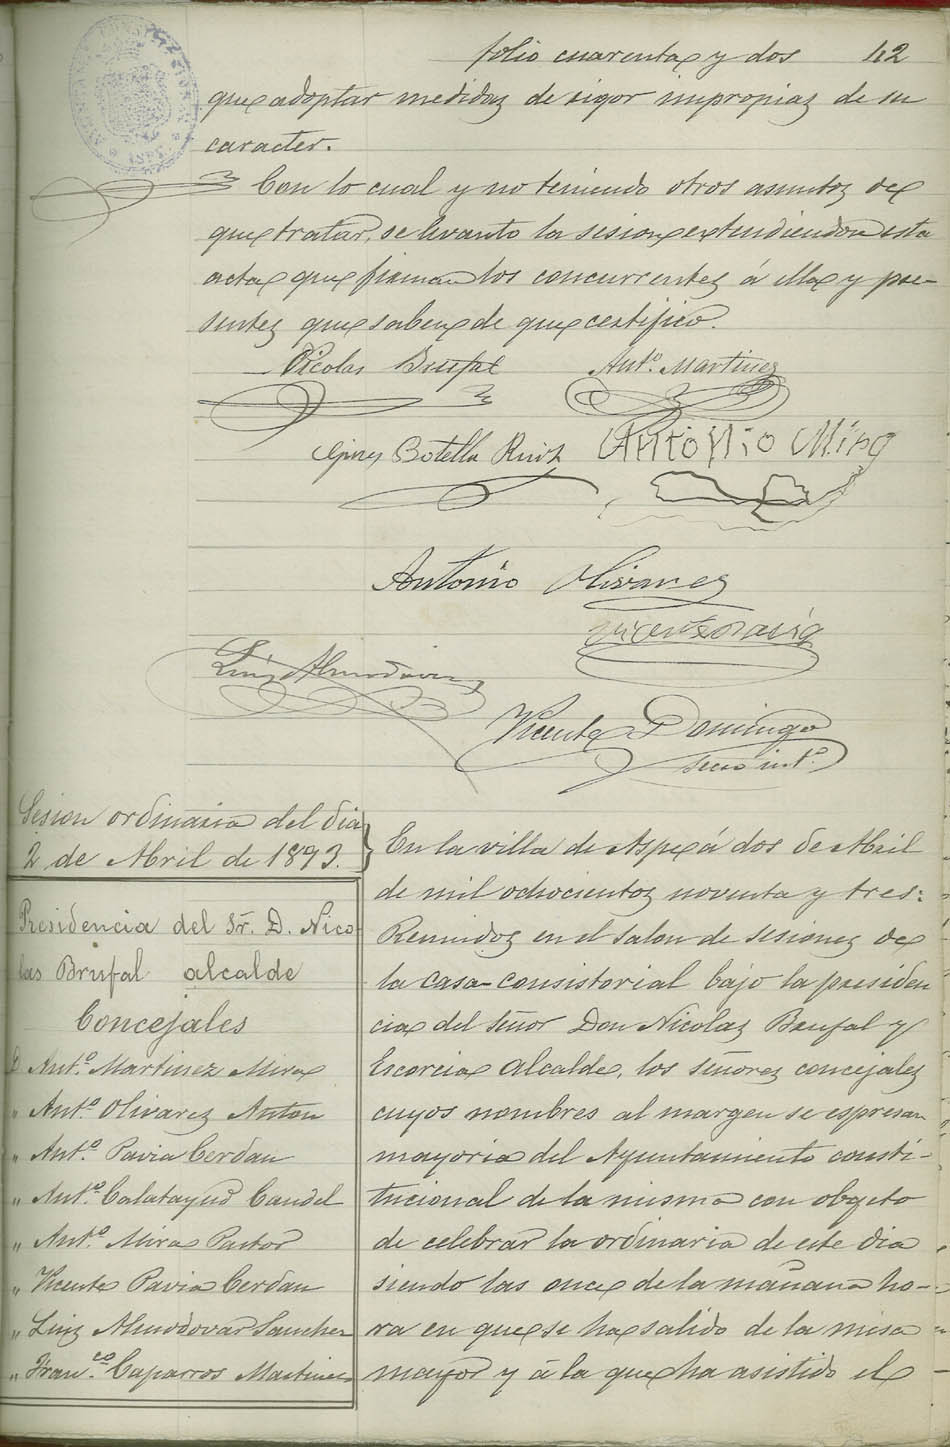 folio cuarenta y dos 42
que adoptar medidas de rigor impropias de su
caracter.
Con lo cual y no teniendo otros asuntos de
que tratar, se levanto la sesion extendiendo esta
acta que firman los concurrentes á ella y pre-
sentes que saben, de que certifico.
Nicolas Brufal Antº. Martinez
Gines Botella Ruiz Antonio Mira
Antonio Olivares
Vicente Pavia
Luis Almodovar
Vicente Domingo
Secrº intº.
Sesion ordinaria del dia
2 de Abril de 1893.
Presidencia del Sr. D. Nico
las Brufal alcalde
Concejales
D. Antº. Martinez Mira
" Antº. Olivares Anton
" Antº. Pavia Cerdan
" Antº. Calatayud Candel
" Antº. Mira Pastor
" Vicente Pavia Cerdan
" Luis Almodovar Sanchez
" Francº. Caparros Martinez
En la villa de Aspe á dos de Abril
de mil ochocientos noventa y tres:
Reunidos en el salon de sesiones de
la casa-consistorial bajo la presiden
cia del Señor Don Nicolas Brufal y
Escorcia Alcalde, los señores concejales
cuyos nombres al margen se espresan
mayoria del Ayuntamiento consti-
tucional de la misma con objeto
de celebrar la ordinaria de este dia
siendo las once de la mañana ho-
ra en que se ha salido de la misa
mayor y á la que ha asistido el